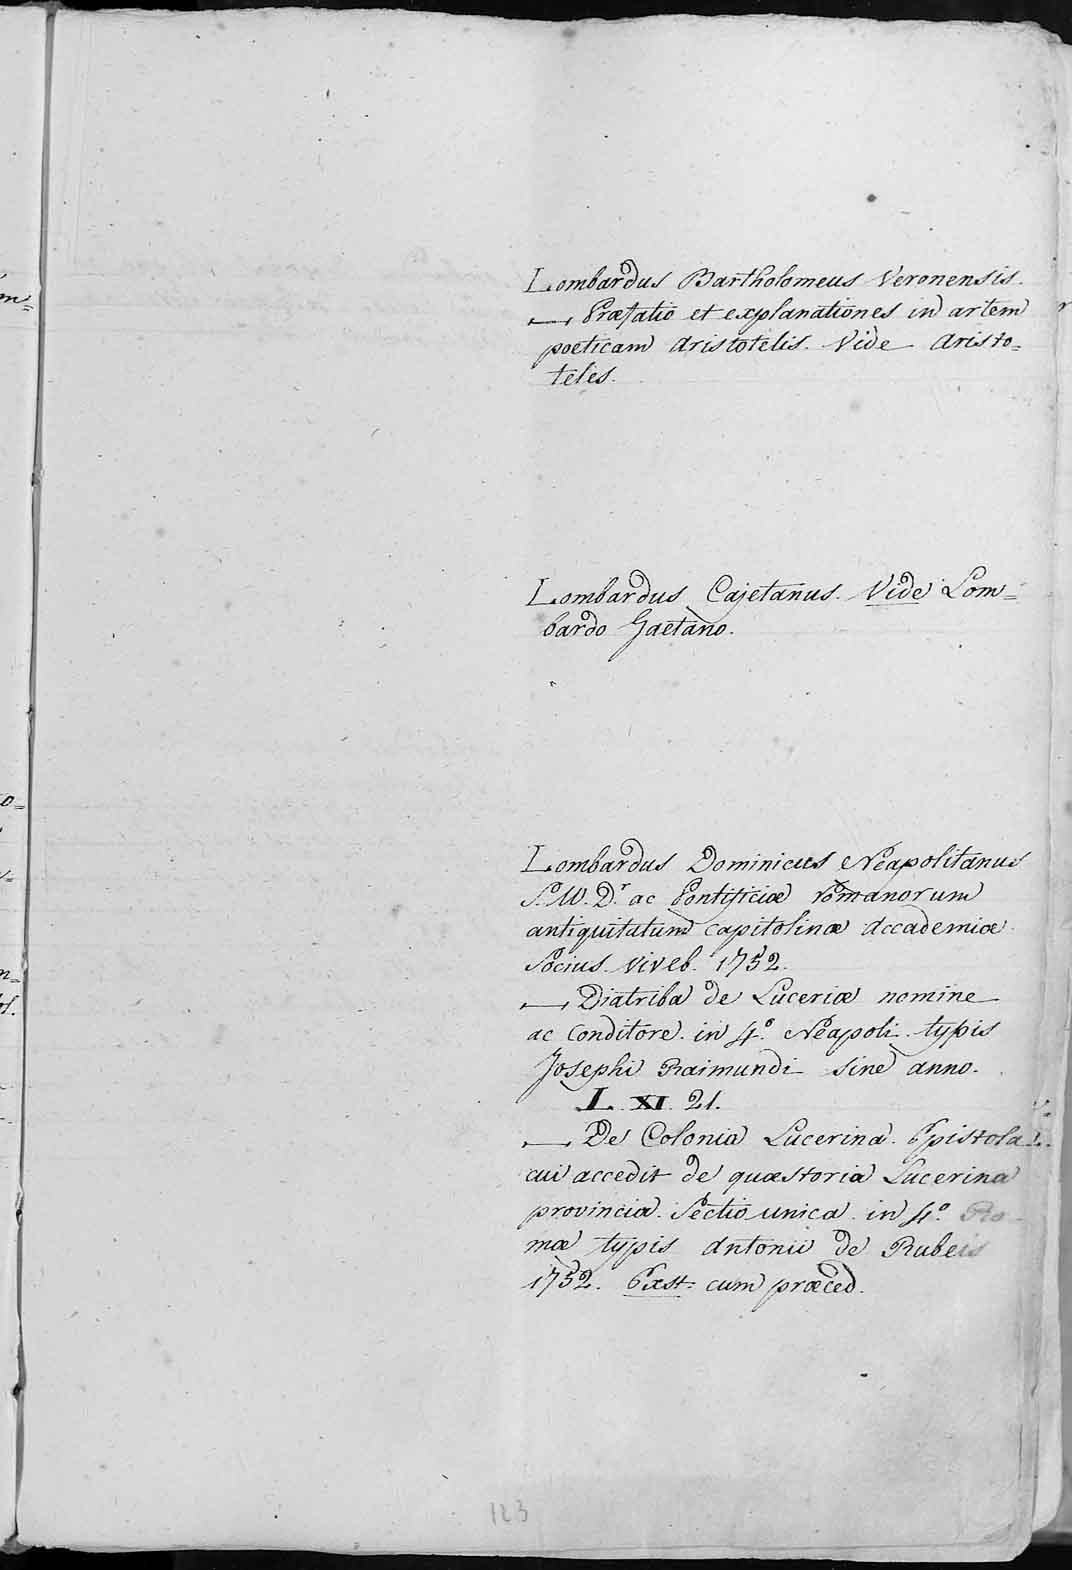 Lombardus Bartholomeus Veronensis.
— Præfatio et explanationes in artem
poeticam Aristotelis. Vide Aristo=
teles.
Lombardus Cajetanus. Vide Lom=
bardo Gaetano.
Lombardus Dominicus Neapolitanus
Dr ac Pontificiæ romanorum
antiquitatum capitolinæ Accademiæ
Socius. viveb. 1752.
— Diatriba de Luceriæ nomine
ac Conditore. in 4.º Neapoli. typis
Josephi Raimundi sine anno.
L. XI. 21.
— De Colonia Lucerina. Epistola
cui accedit de quæstoria Lucerina
provincia. Sectio unica. in 4.º Ro-
mæ typis Antonii de Rubeis
1752. Exst. cum præced.
123